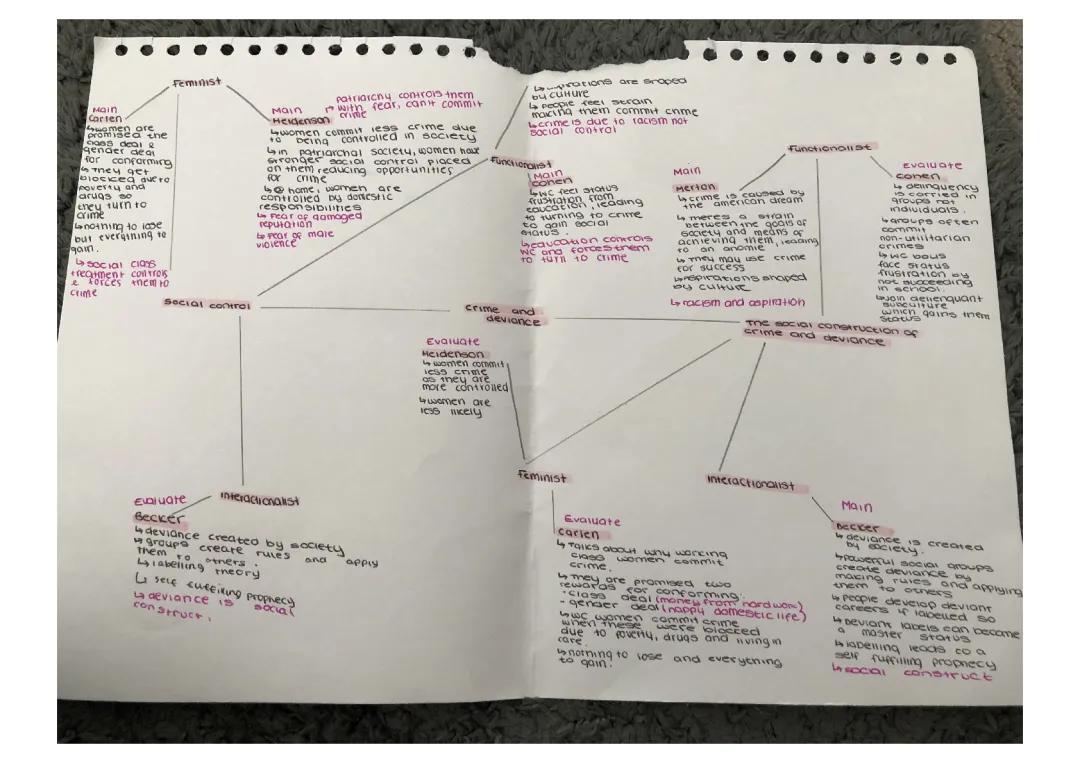 Feminist
Main
Carlen
↳women are
promised the
class deal &
gender deal
for conforming
↳ They get
blocked due to
poverty and
drugs so
they turn to
crime
↳nothing to lose
but everything to
gain.
↳ social class
treatment controls
& forces them to
crime
patriarchy controls them
Main ↱ with fear, can't commit
crime
Heidenson
↳women commit less crime due
to being controlled in society
↳in patriarchal society, women have
stronger social control placed
on them reducing opportunities
for crime
↳@ home, women are
controlled by domestic
responsibilities
↳ Fear of damaged
reputation
↳ Fear of male
violence
are shaped
by culture
↳ people feel strain
making them commit crime
↳crime is due to racism not
social control
Functionalist
Main
Cohen
↳WC feel status
frustration from
education, leading
to turning to crime
to gain social
status.
↳education controls
WC and forces them
to turn to crime
Functionalist
Main
Merton
↳crime is caused by
the american dream
↳ theres a strain
between the goals of
society and means of
achieving them, leading
to an anomie
↳ They may use crime
for success
↳aspirations shaped
by culture
↳ racism and aspiration
Evaluate
Cohen
↳ delinquency
is carried in
groups not
individuals.
↳groups often
commit
non-utilitarian
crimes
↳ WC boys
face status
frustration by
not succeeding
in school.
↳join delenquant
subculture
which gains them
status
Social control
Crime and
deviance
The social construction of
crime and deviance
Evaluate
Heidenson
↳ women commit
less crime
as they are
more controlled
↳women are
less likely
Interactionalist
Evaluate
Becker
↳deviance created by society
↳ groups create rules and apply
them to others.
↳labelling theory
↳ self fulfilling prophecy
↳ deviance is social
construct.
Feminist
Evaluate
Carlen
↳ Talks about why working
class women commit
crime.
↳ They are promised two
rewards for conforming:
·class deal (money from hard work)
- gender deal (happy domestic life)
↳WC women commit crime
when these were blocked
due to poverty, drugs and living in
care.
↳nothing to lose and everything
to gain.
Interactionalist
Main
Becker
↳ deviance is created
by society.
↳powerful social groups
create deviance by
making rules and applying
them to others
↳ People develop deviant
careers if labelled so
↳ Deviant labels can become
a master status
↳ labelling leads to a
self fulfilling prophecy
↳social construct